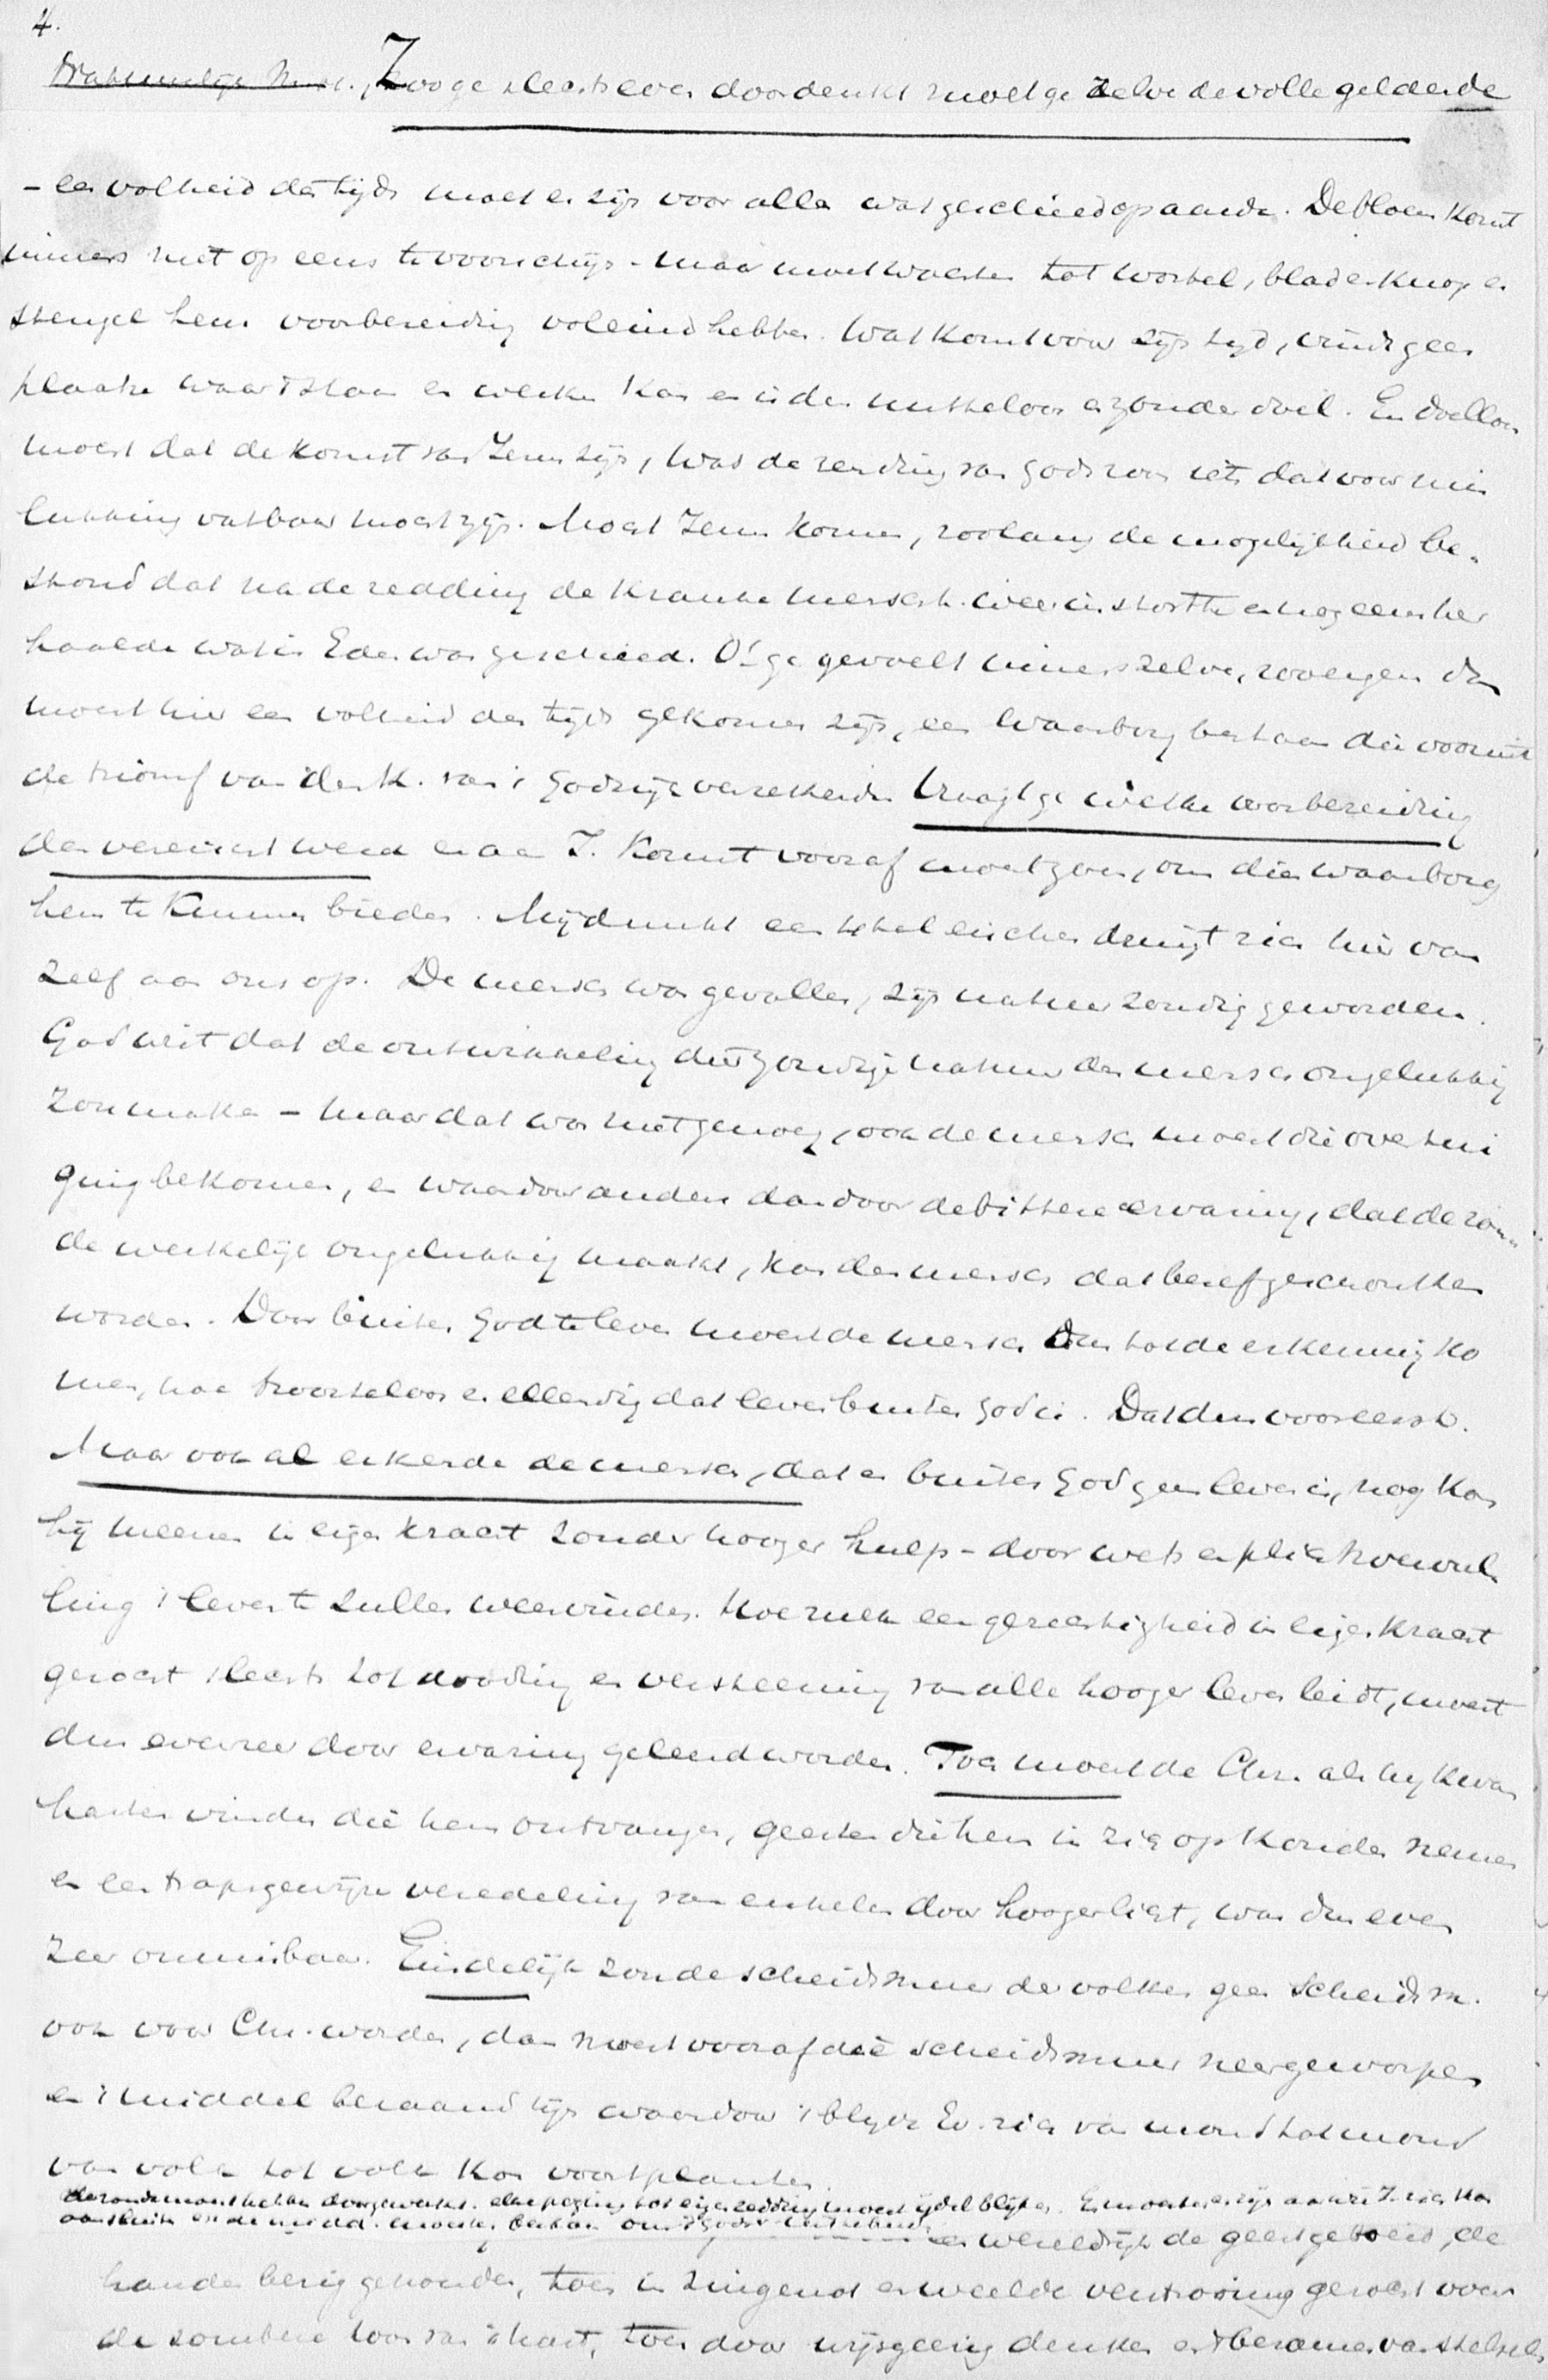 4.
Zoo ge slechts even doordenkt moet ge zelve de volle geldende
- een volheid des tijds moest er zijn voor alles wat geschied op aarde. De bloem komt
immers niet op eens te voorschijn - maar moet wachten tot wortel, blad en knop en
stengel hem voorbereiding voleind hebben. Wat komt voor zijn tijd, vindt geen
plaats waar 't staan en werken kan en is dus nutteloos en zonder doel. En doelloos
moest dat de komst van Jezus zijn, was de zending van Gods zoon iets dat voor mis
lukking vatbaar moest zijn. Mocht Jezus komen, zoolang de mogelijkheid be-
stond dat na de redding de kranke mensch. weer instortte en nog eens her
haalde wat in Eden was geschied. O! ge gevoelt immers zelve, zoo ergens dan
moest hier een volheid des tijds gekomen zijn, een waarborg bestaan die vooruit
de triomf van der K. van 't Godsrijk verzekerde. Vraagt ge welke voorbereiding
dan vereischt werd en aan J. komst vooraf moest gaan, om dien waarborg
hem te kunnen bieden. Mij dunkt een tal eischen dringt zich hier van
zelf aan ons op. De mensch was gevallen, zijn natuur zondig geworden.
God wist dat de ontwikkeling dier zondige natuur den mensch ongelukkig
zou maken - maar dat was niet genoeg, ook de mensch moest die overtui
ging bekomen, en waardoor anders dan door de bittere ervaring, dat de zon
de werkelijk ongelukkig maakt, kon den mensch dat besef geschonken
worden. Door buiten God te leven moest de mensch dus tot de erkenning ko
men, hoe troosteloos en ellendig dat leven buiten God is. Dat dus vooreerst.
Maar ook al erkende de mensch, dat er buiten God geen leven is, nog kon
hij meenen in eigen kracht zonder hooger hulp - door wets en plichtvervul
ling 't leven te zullen weervinden. Hoe zulk een gerechtigheid in eigen kracht
gezocht slechts tot dooding en versteening van alle hooger leven leidt, moest
dus evenzeer door ervaring geleerd worden. Toch moest de Chr. als hij kwam
harten vinden die hem ontvangen, geesten die hem in zich op konden nemen
en een trapsgewijze veredeling van enkelen door hooger licht, was dus even
zeer onmisbaar. Eindelijk zou de scheidsmuur der volken geen scheidsm.
ook voor Chr. worden, dan moest vooraf die scheidsmuur neergeworpen
en 't middel beraamd zijn waardoor 't blijde Ev. zich van mond tot mond
van volk tot volk kon voortplanten.
de zonde moest hebben doorgewerkt. elke poging tot eigen redding moest ijdel blijken. Er moesten er zijn aan wie J. zich kon
aansluiten en de midd. moesten bestaan om 't Godsr.
wereldrijk de geest geboeid, de
handen bezig gehouden, toen in zingenot en weelde verstrooiing gezocht voor
de sombere toon van 't hart, toen door wijsgeerig denken en 't beramen van stelsels